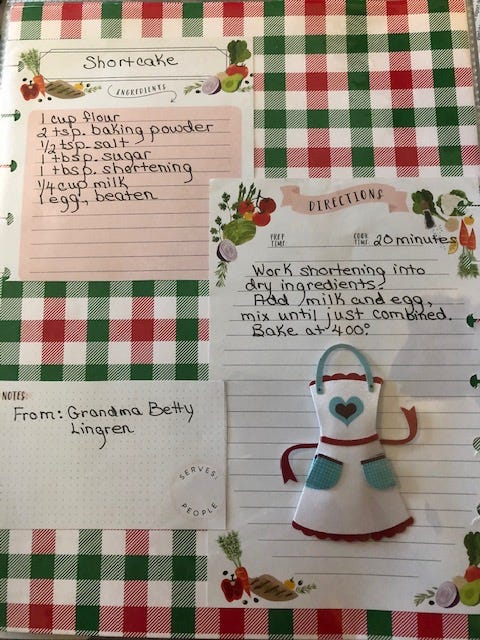 Shortcake
INGREDIENTS
1 cup flour
2 tsp. baking powder
1/2 tsp. salt
1 tbsp. sugar
1 tbsp. shortening
1/4 cup milk
1 egg, beaten
DIRECTIONS
PREP TIME
COOK TIME 20 minutes
Work shortening into
dry ingredients.
Add milk and egg,
mix until just combined.
Bake at 400°
NOTES:
From: Grandma Betty
Lingren
SERVES:
PEOPLE